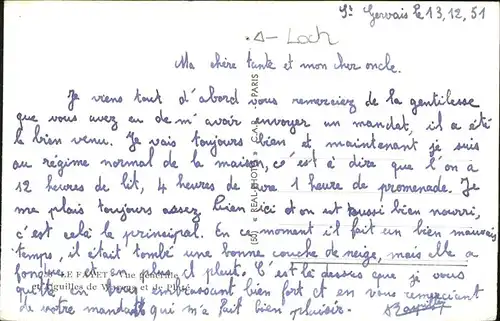 St Gervais le 13,12,51
Loch
Ma chère tante et mon cher oncle.
Je viens tout d'abord vous remerciez de la gentilesse
que vous avez eu de m'avoir envoyer un mandat, il a été
le bien venu. Je vais toujours bien et maintenant je suis
au régime normal de la maison, c'est à dire que l'on à
12 heures de lit, 4 heures de cure 1 heure de promenade. Je
me plais toujours assez bien ici et on est aussi bien nourri,
c'est celà le principal. En ce moment il fait un bien mauvais
temps, il était tombé une bonne couche de neige, mais elle a
fondue et il pleut. C'est la dessus que je vous
quitte en vous embrassant bien fort et en vous remerciant
de votre mandat qui m'a fait bien plaisir.
LE FAYET
Aiguilles de
(50) REAL-PHOTO C.A.P. PARIS